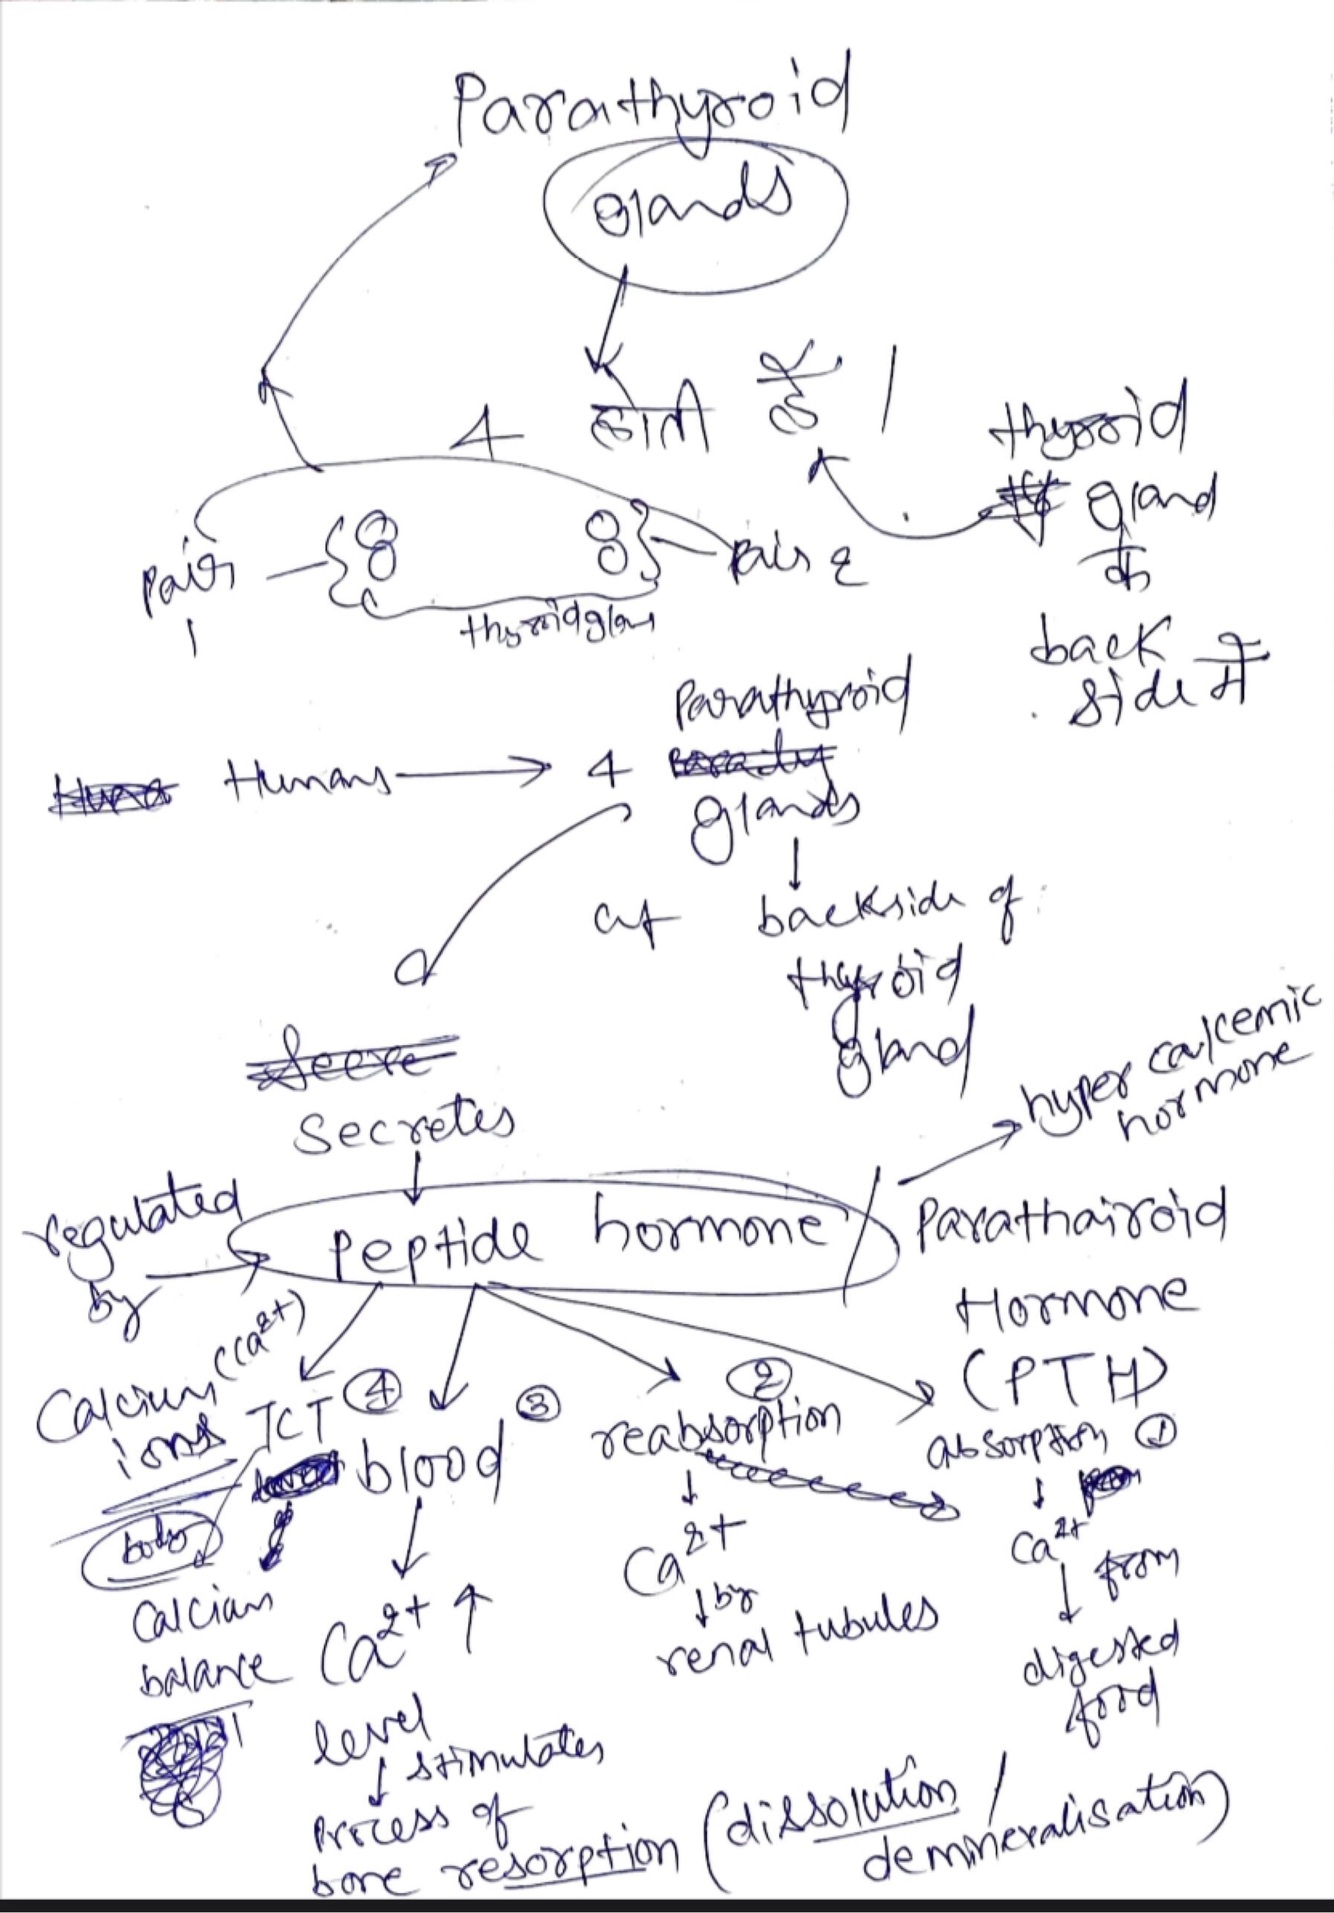 Parathyroid
glands
4 होती है ।
thyroid
gland
के
back
side में
pair
1
pair 2
thyroid glan
Parathyroid
Humans → 4
glands
↓
at backside of
thyroid
gland
Secretes
↓
hyper calcemic
hormone
regulated
by
Peptide hormone / Parathairoid
Hormone
(PTH)
Calcium (Ca2+)
ions
TCT ④
blood ③
② reabsorption
absorption ①
body
Calcium
balance
↓
Ca2+ ↑
level
↓ stimulates
process of
bone resorption (dissolution /
demineralisation)
↓
Ca2+
↓ by
renal tubules
↓
Ca2+
↓ from
digested
food